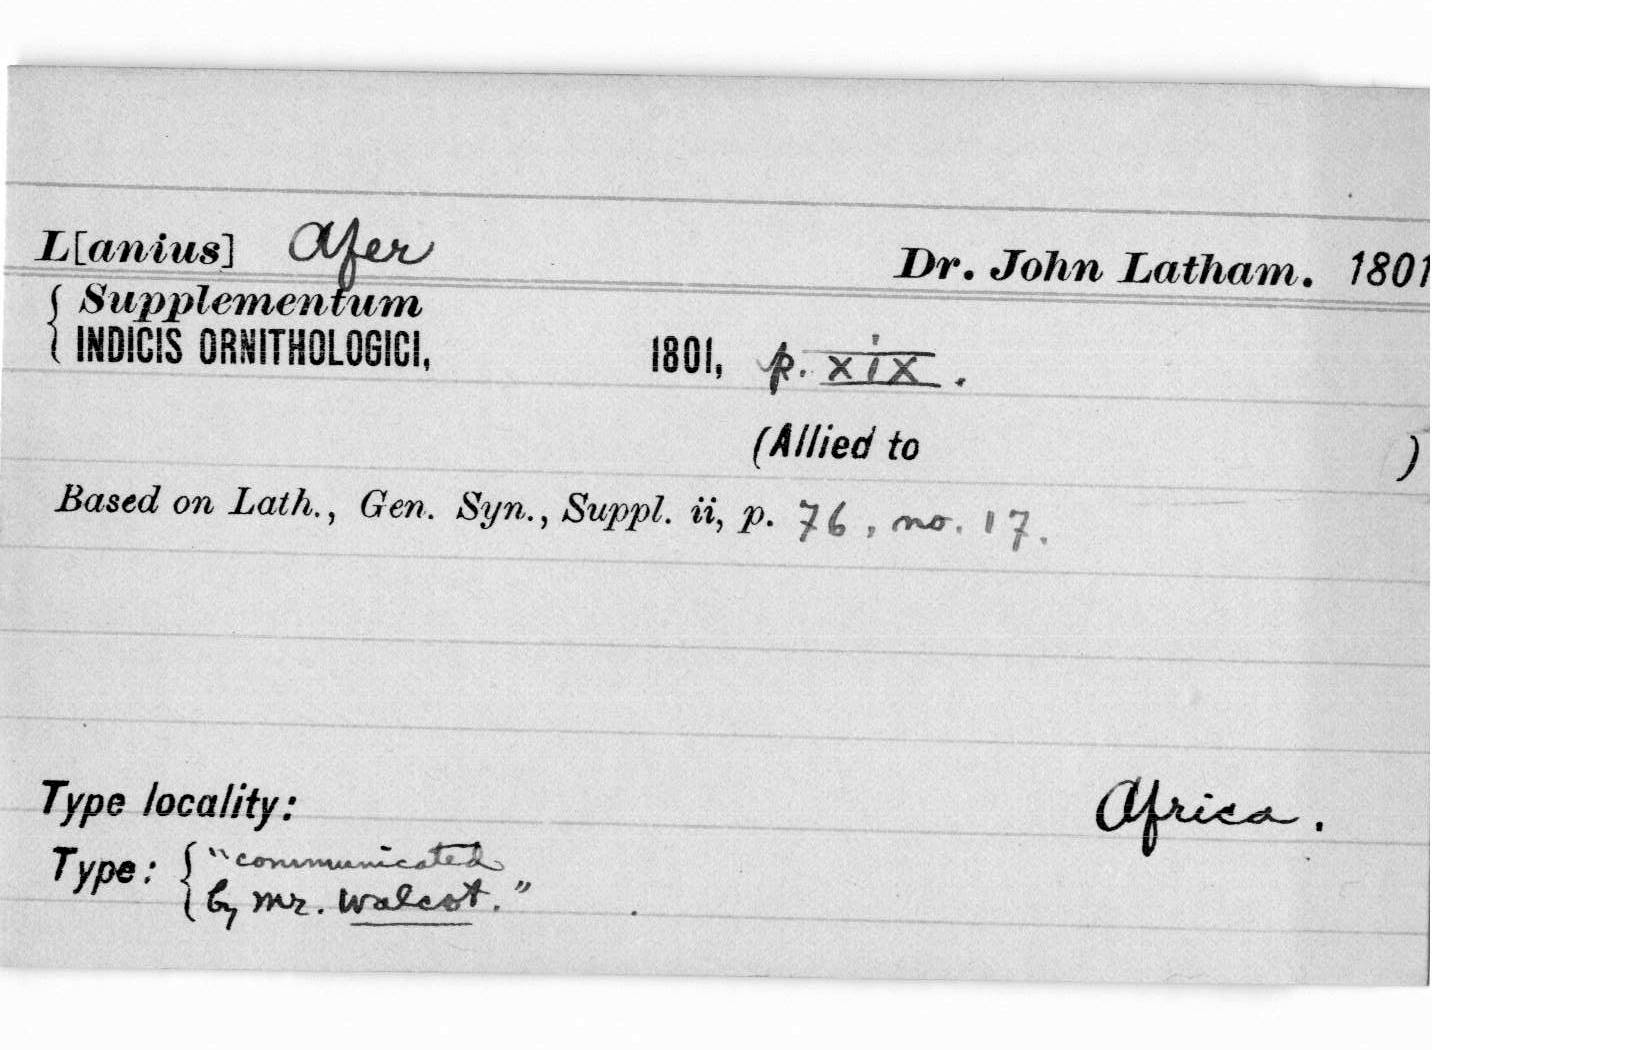 L[anius] Afer Dr. John Latham. 1801
Supplementum
INDICIS ORNITHOLOGICI, 1801, p. xix.
(Allied to )
Based on Lath., Gen. Syn., Suppl. ii, p. 76, no. 17.
Type locality: Africa.
Type: { "communicated
by Mr. Walcot."